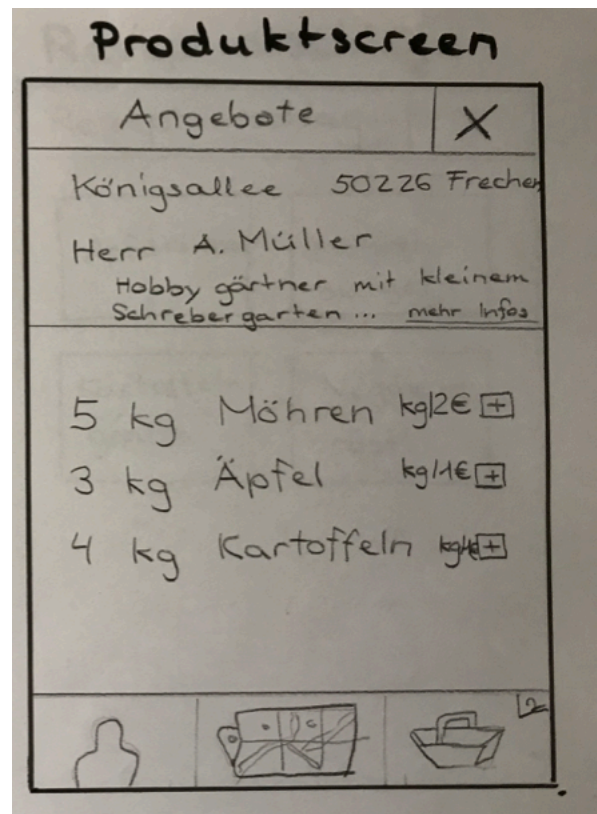 Produktscreen
Angebote X
Königsallee 50226 Frechen
Herr A. Müller
Hobby gärtner mit kleinem
Schrebergarten... mehr Infos
5 kg Möhren kg/2€ +
3 kg Äpfel kg/1€ +
4 kg Kartoffeln +
2